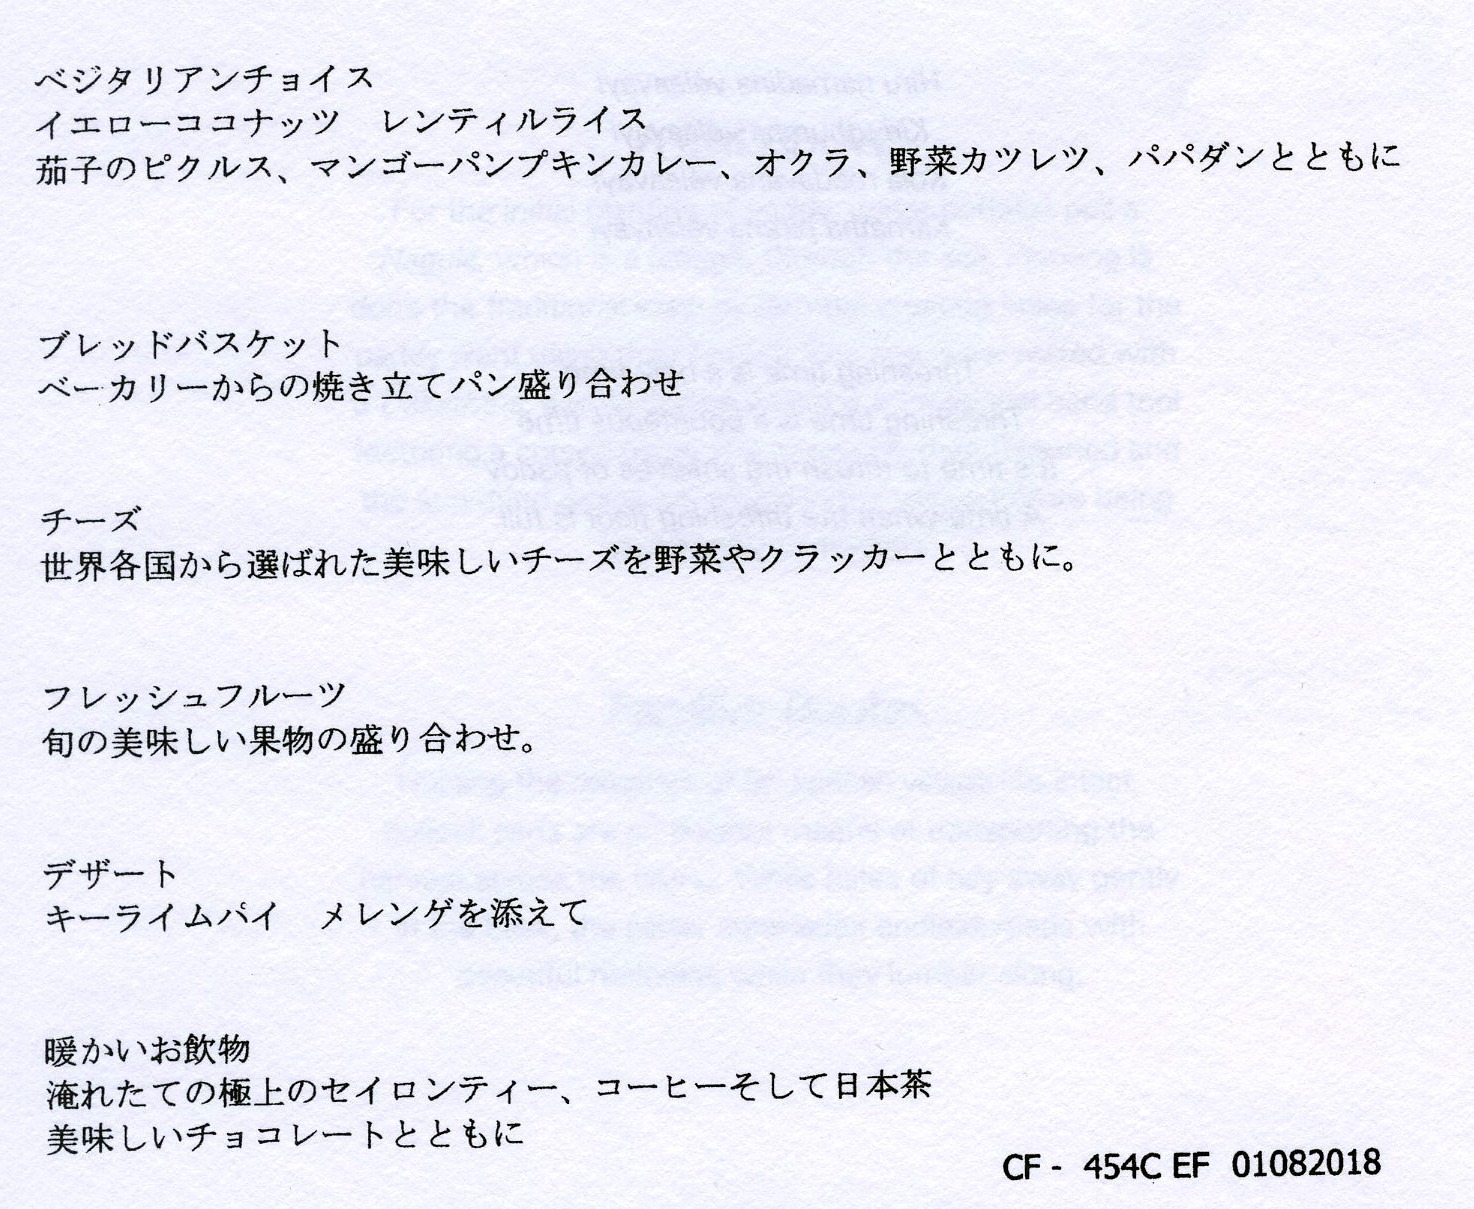 ベジタリアンチョイス
イエローココナッツ　レンティルライス
茄子のピクルス、マンゴーパンプキンカレー、オクラ、野菜カツレツ、パパダンとともに
ブレッドバスケット
ベーカリーからの焼き立てパン盛り合わせ
チーズ
世界各国から選ばれた美味しいチーズを野菜やクラッカーとともに。
フレッシュフルーツ
旬の美味しい果物の盛り合わせ。
デザート
キーライムパイ　メレンゲを添えて
暖かいお飲物
淹れたての極上のセイロンティー、コーヒーそして日本茶
美味しいチョコレートとともに
CF - 454C EF 01082018